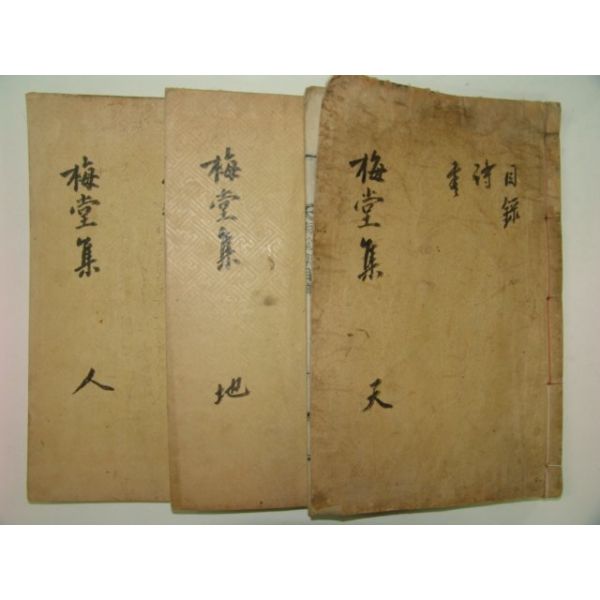 目錄
詩
梅堂集
天
梅堂集
地
梅堂集
人